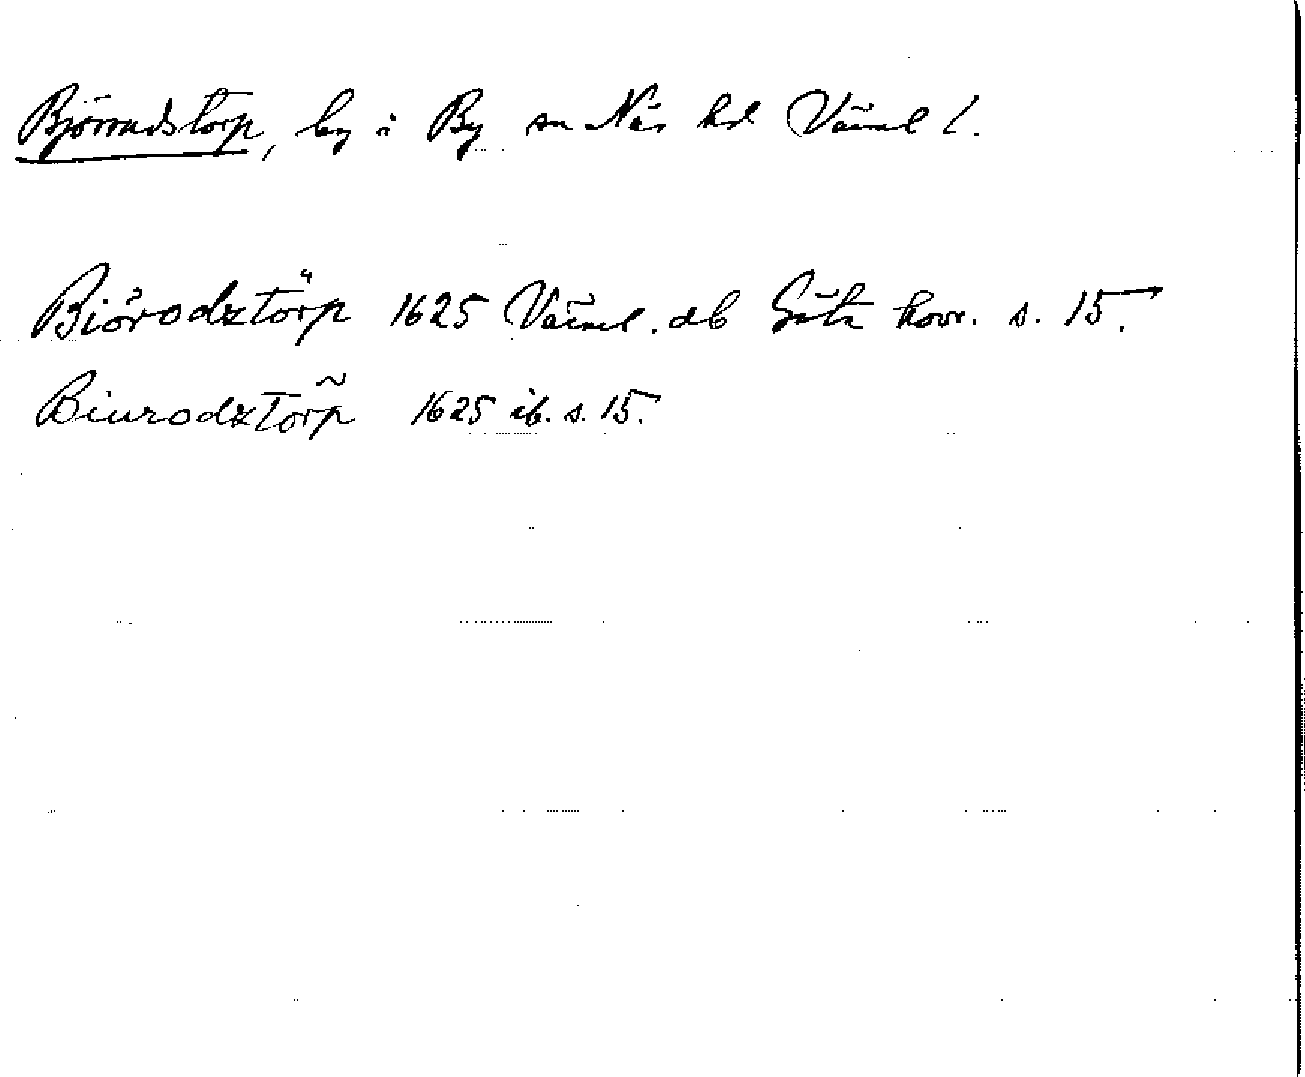 Björrudstorp, by i By sn Näs hd Värml l.
Biörodztörp 1625 Värml. db Göta hovr. s. 15.
Biurodztorp 1625 ib. s. 15.